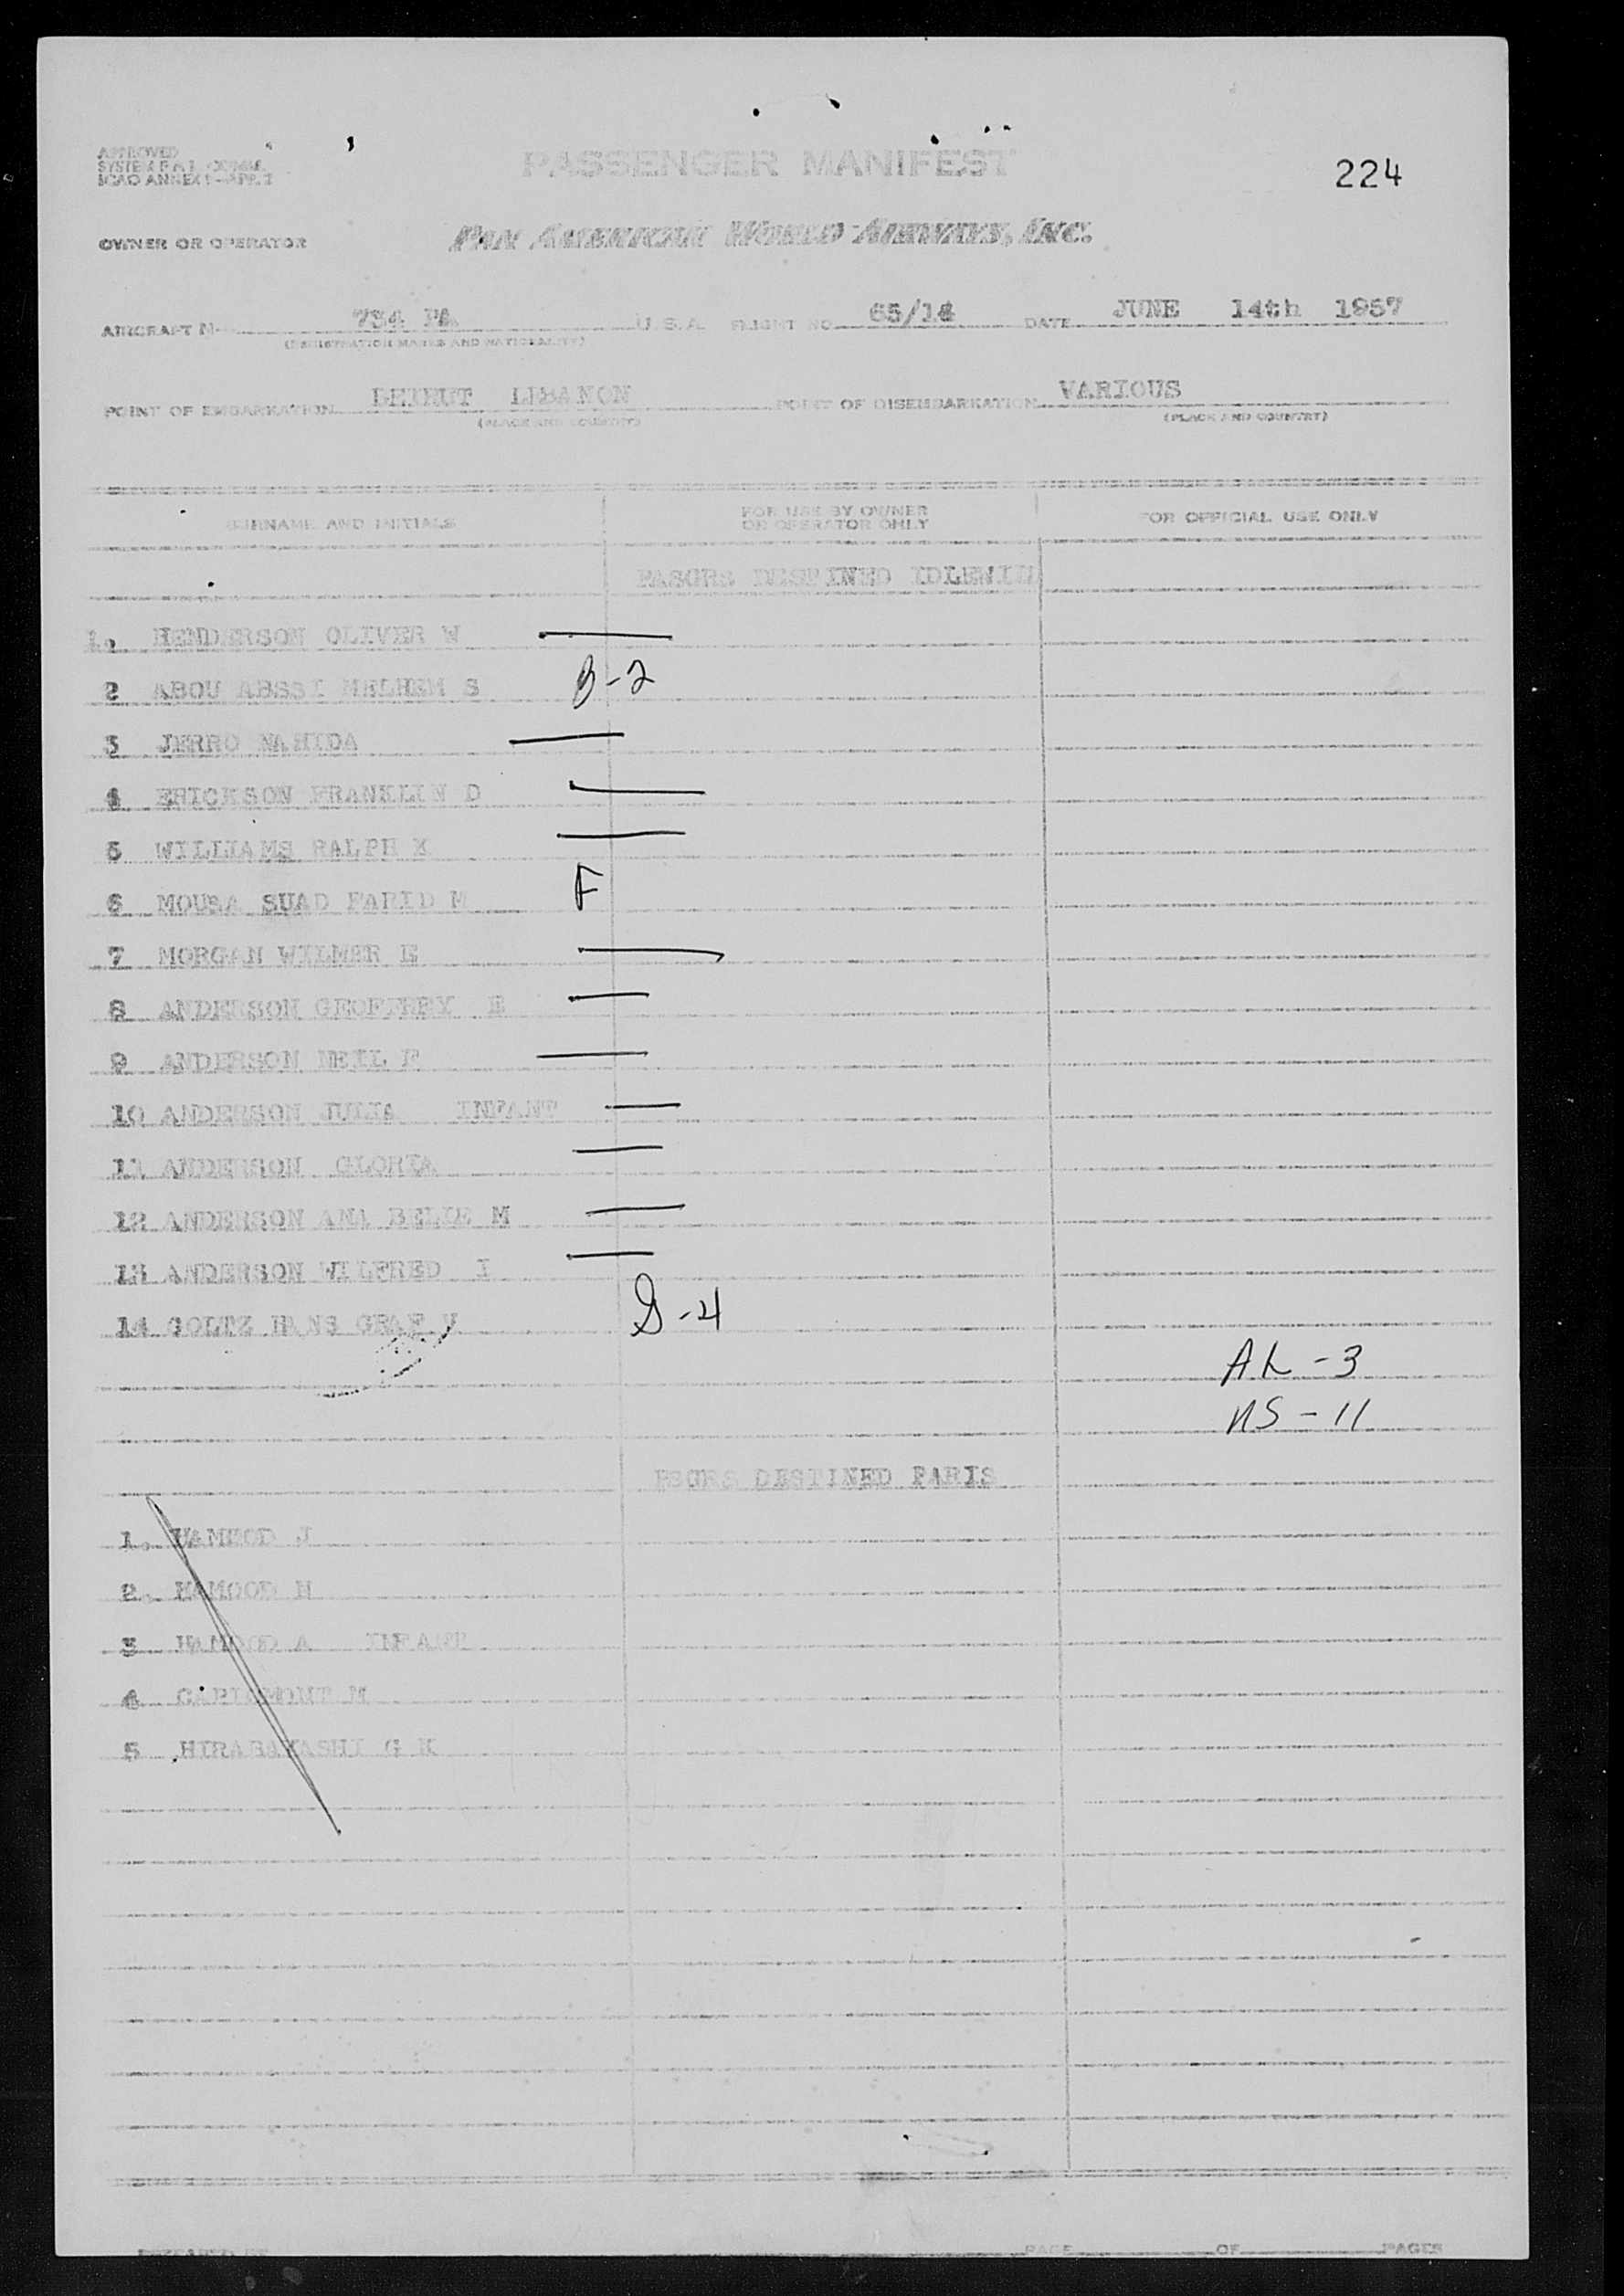 APPROVED
SYSTEM P.A.I. COMM.
ICAO ANNEX 9-APP. 2
PASSENGER MANIFEST
224
OWNER OR OPERATOR
PAN AMERICAN WORLD AIRWAYS, INC.
AIRCRAFT N 734 PA U.S.A. FLIGHT NO. 65/14 DATE JUNE 14th 1957
(REGISTRATION MARKS AND NATIONALITY)
POINT OF EMBARKATION BEIRUT LEBANON POINT OF DISEMBARKATION VARIOUS
(PLACE AND COUNTRY) (PLACE AND COUNTRY)
SURNAME AND INITIALS FOR USE BY OWNER OR OPERATOR ONLY FOR OFFICIAL USE ONLY
PASGRS DESTINED IDLEWILD
1. HENDERSON OLIVER W
2 ABOU ABSSI MELHEM S B-2
3 JERRO NAHIDA
4 ERICKSON FRANKLIN D
5 WILLIAMS RALPH K
6 MOUSA SUAD FARID M F
7 MORGAN WILMER E
8 ANDERSON GEOFFREY E
9 ANDERSON NEIL F
10 ANDERSON JULIA INFANT
11 ANDERSON GLORIA
12 ANDERSON ANA BELLE M
13 ANDERSON WILFRED I
14 GOLTZ HANS GRAF V G-4
AL-3
NS-11
PSGRS DESTINED PARIS
1. HAMOOD J
2. HAMOOD H
3 HAMOOD A INFANT
4 M
5 HIRABAYASHI G K
PREPARED BY PAGE OF PAGES